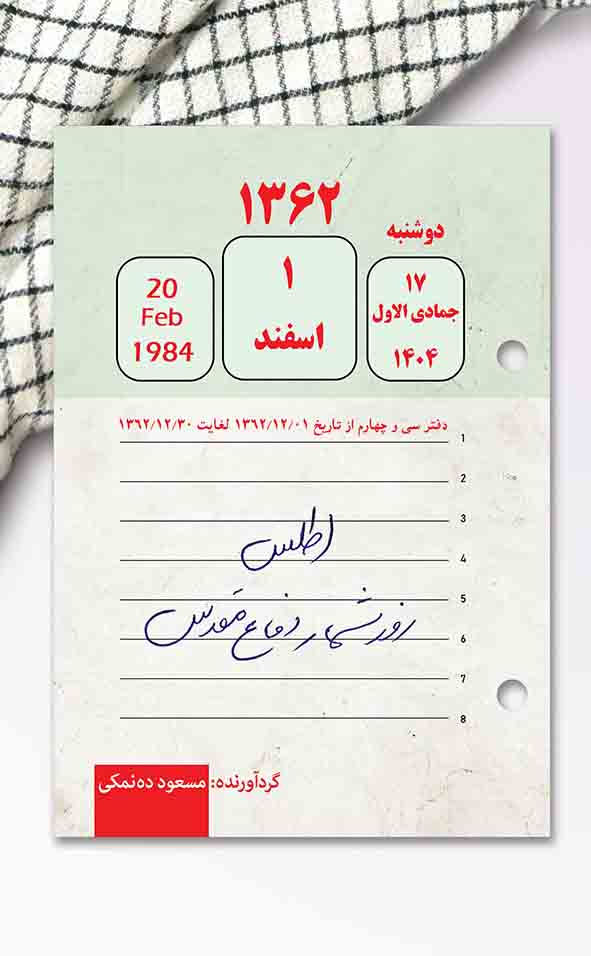 ۱۳۶۲
دوشنبه
۱۷
جمادی الاول
۱۴۰۴
۱
اسفند
20
Feb
1984
دفتر سی و چهارم از تاریخ ۱۳۶۲/۱۲/۰۱ لغایت ۱۳۶۲/۱۲/۳۰
1
2
3
اطلس
4
5
روزشمار دفاع مقدس
6
7
8
گردآورنده: مسعود ده‌نمکی